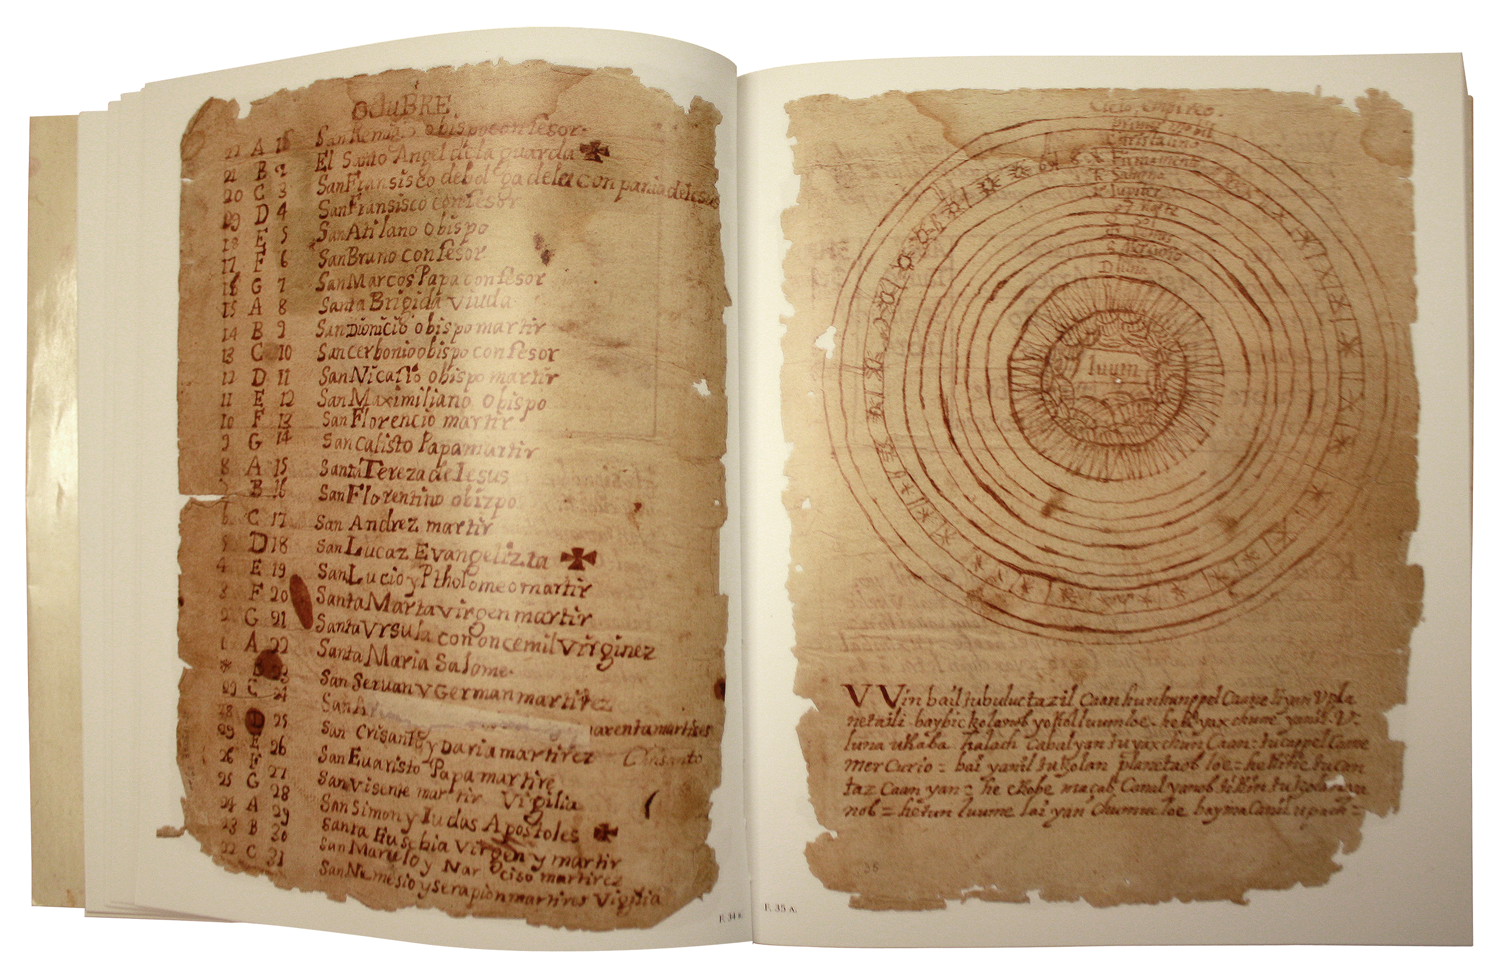 OctuBRE.
22 A 1 San Remigio obispo confesor.
21 B 2 El Santo Angel de la guarda ✠
20 C 3 San Fransisco de de la conpania de Jesus
19 D 4 San Fransisco confesor
18 E 5 San Atilano obispo
17 F 6 San Bruno confesor
16 G 7 San Marcos Papa confesor
15 A 8 Santa Brigida viuda
14 B 9 San Dionicio obispo martir
13 C 10 San cerbonio obispo confesor
12 D 11 San Nicasio obispo martir
11 E 12 San Maximiliano Obispo
10 F 13 San Florencio martir
9 G 14 San calisto Papa martir
8 A 15 Santa Tereza de Iesus
7 B 16 San Florentino obizpo
6 C 17 San Andrez martir
5 D 18 San Lucaz Evangelizta ✠
4 E 19 San Lucio y Ptholomeo martir
3 F 20 Santa Marta virgen martir
2 G 21 Santa Vrsula con oncemil virginez
1 A 22 Santa Maria Salome.
* San Seruan y German martirez
C 24 San
D 25 San Crisanto y Daria martirez
E 26 San Euaristo Papa martire
F 27 San Visente martir Vigilia
G 28 San Simon y Iudas Apostoles ✠
A 29 Santa Eusebia Virgen y martir
B 30 San Marulo y Narciso martirez
C 31 San Nemesio y serapion martires Vigilia
F. 34 B.
Cielo Empireo.
primer mobil
Cristalino
Firmamento
Saturno
Jupiter
Marte
Sol
Venus
Mercurio
D luna
luum
VVin bail tubuluc tazil Caan hunhunppel Caane tyan Vpla
netaili baybic kolanob yokol luum loe. he ti yax chune yanil V.
luna ukaba halach cabal yan tu yaxchun Caan: tu cappel Caane
mercurio = bai yanil tu planetaob loe = he
taz Caan yan =
nob = he tun luume lai yan chumuc loe bayma Canil upach =
35
F. 35 A.